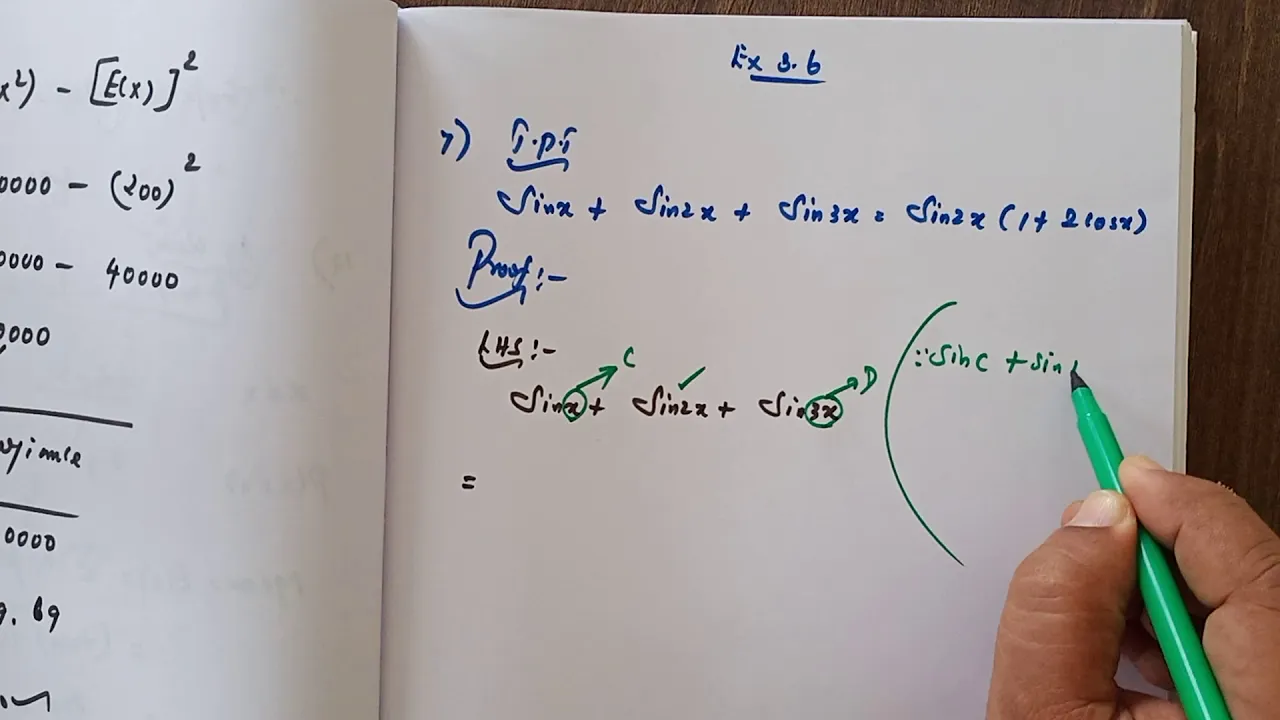 x²) - [E(x)]²
0000 - (200)²
0000 - 40000
0000
0000
9. 69
Ex 3.6
7) T.P.T
Sinx + Sin2x + Sin3x = Sin2x (1 + 2cosx)
Proof:-
LHS:-
C
D
Sinx + Sin2x + Sin3x
=
∵ Sin C + Sin